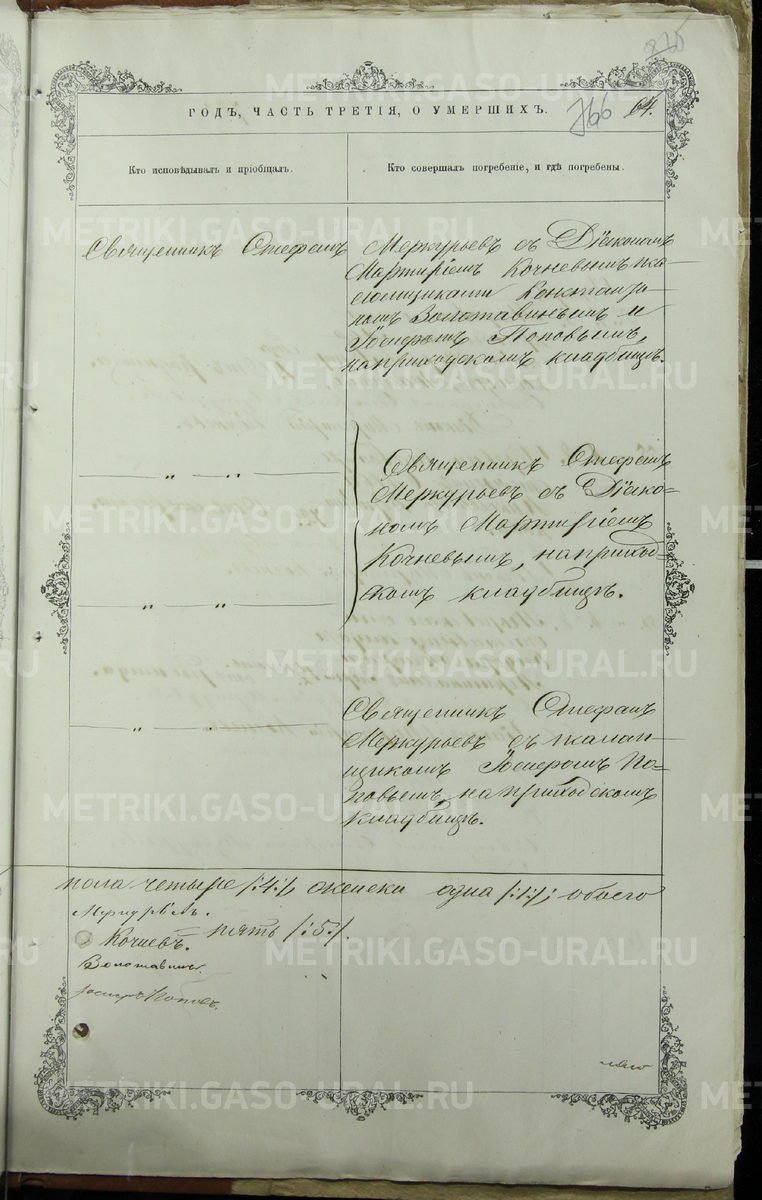 766 64.
ГОДЪ, ЧАСТЬ ТРЕТІЯ, О УМЕРШИХЪ.
Кто исповѣдывалъ и пріобщалъ.
Кто совершалъ погребеніе, и гдѣ погребены.
Священникъ Стефанъ Меркурьевъ съ Діакономъ
Мартиріемъ Кочневымъ
Золотавинымъ и
Іосифомъ Поповымъ,
на приходскомъ кладбищѣ.
— „ — „ —
Священникъ Стефанъ
Меркурьевъ съ Діако-
номъ Мартиріемъ
Кочневымъ, на приход-
скомъ кладбищѣ.
— „ — „ —
— „ — „ —
Священникъ Стефанъ
Меркурьевъ съ
щикомъ Іосифомъ По-
повымъ, на приходскомъ
кладбищѣ.
пола четыре /:4:/, женска одна /:1:/; обоего
пять /:5:/.
Кочневъ.
Золотавинъ.
Іосифъ Поповъ.
METRIKI.GASO-URAL.RU